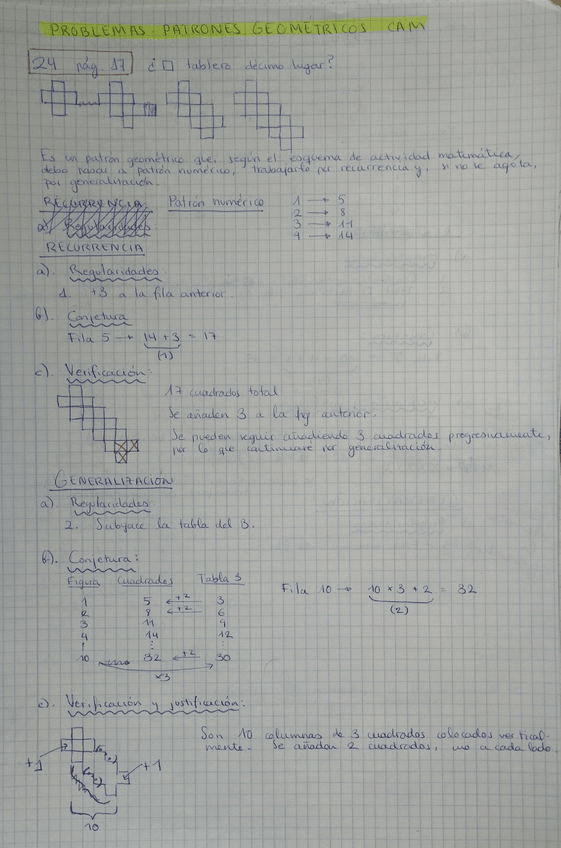 PROBLEMAS PATRONES GEOMÉTRICOS CAM
24 pág. 17 ¿ □ tablero décimo lugar?
Es un patrón geométrico que, según el esquema de actividad matemática,
debo pasar a patrón numérico, trabajarlo por recurrencia y, si no se agota,
por generalización.
RECURRENCIA Patrón numérico 1 → 5
a) Regularidades 2 → 8
3 → 11
4 → 14
RECURRENCIA
a). Regularidades
1. +3 a la fila anterior.
b). Conjetura
Fila 5 → 14 + 3 = 17
(1)
c). Verificación:
17 cuadrados total
Se añaden 3 a la fig anterior.
Se pueden seguir añadiendo 3 cuadrados progresivamente,
por lo que continuaré por generalización
GENERALIZACIÓN
a) Regularidades
2. Subyace la tabla del 3.
b). Conjetura:
Figura Cuadrados Tabla 3 Fila 10 → 10 x 3 + 2 = 32
(2)
1 5 ←+2 3
2 8 ←+2 6
3 11 9
4 14 12
⋮ ⋮ ⋮
10 32 ←+2 30
x3
c). Verificación y justificación:
Son 10 columnas de 3 cuadrados colocados vertical-
mente. Se añaden 2 cuadrados, uno a cada lado.
+1
+1
10